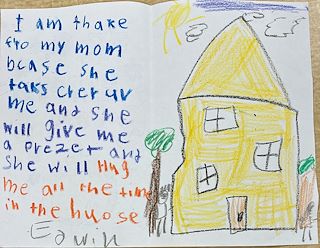 I am thake
fro my mom
bcase she
taks cher uv
me and she
will give me
a prezet and
she will hug
me all the time
in the huose
Edwin